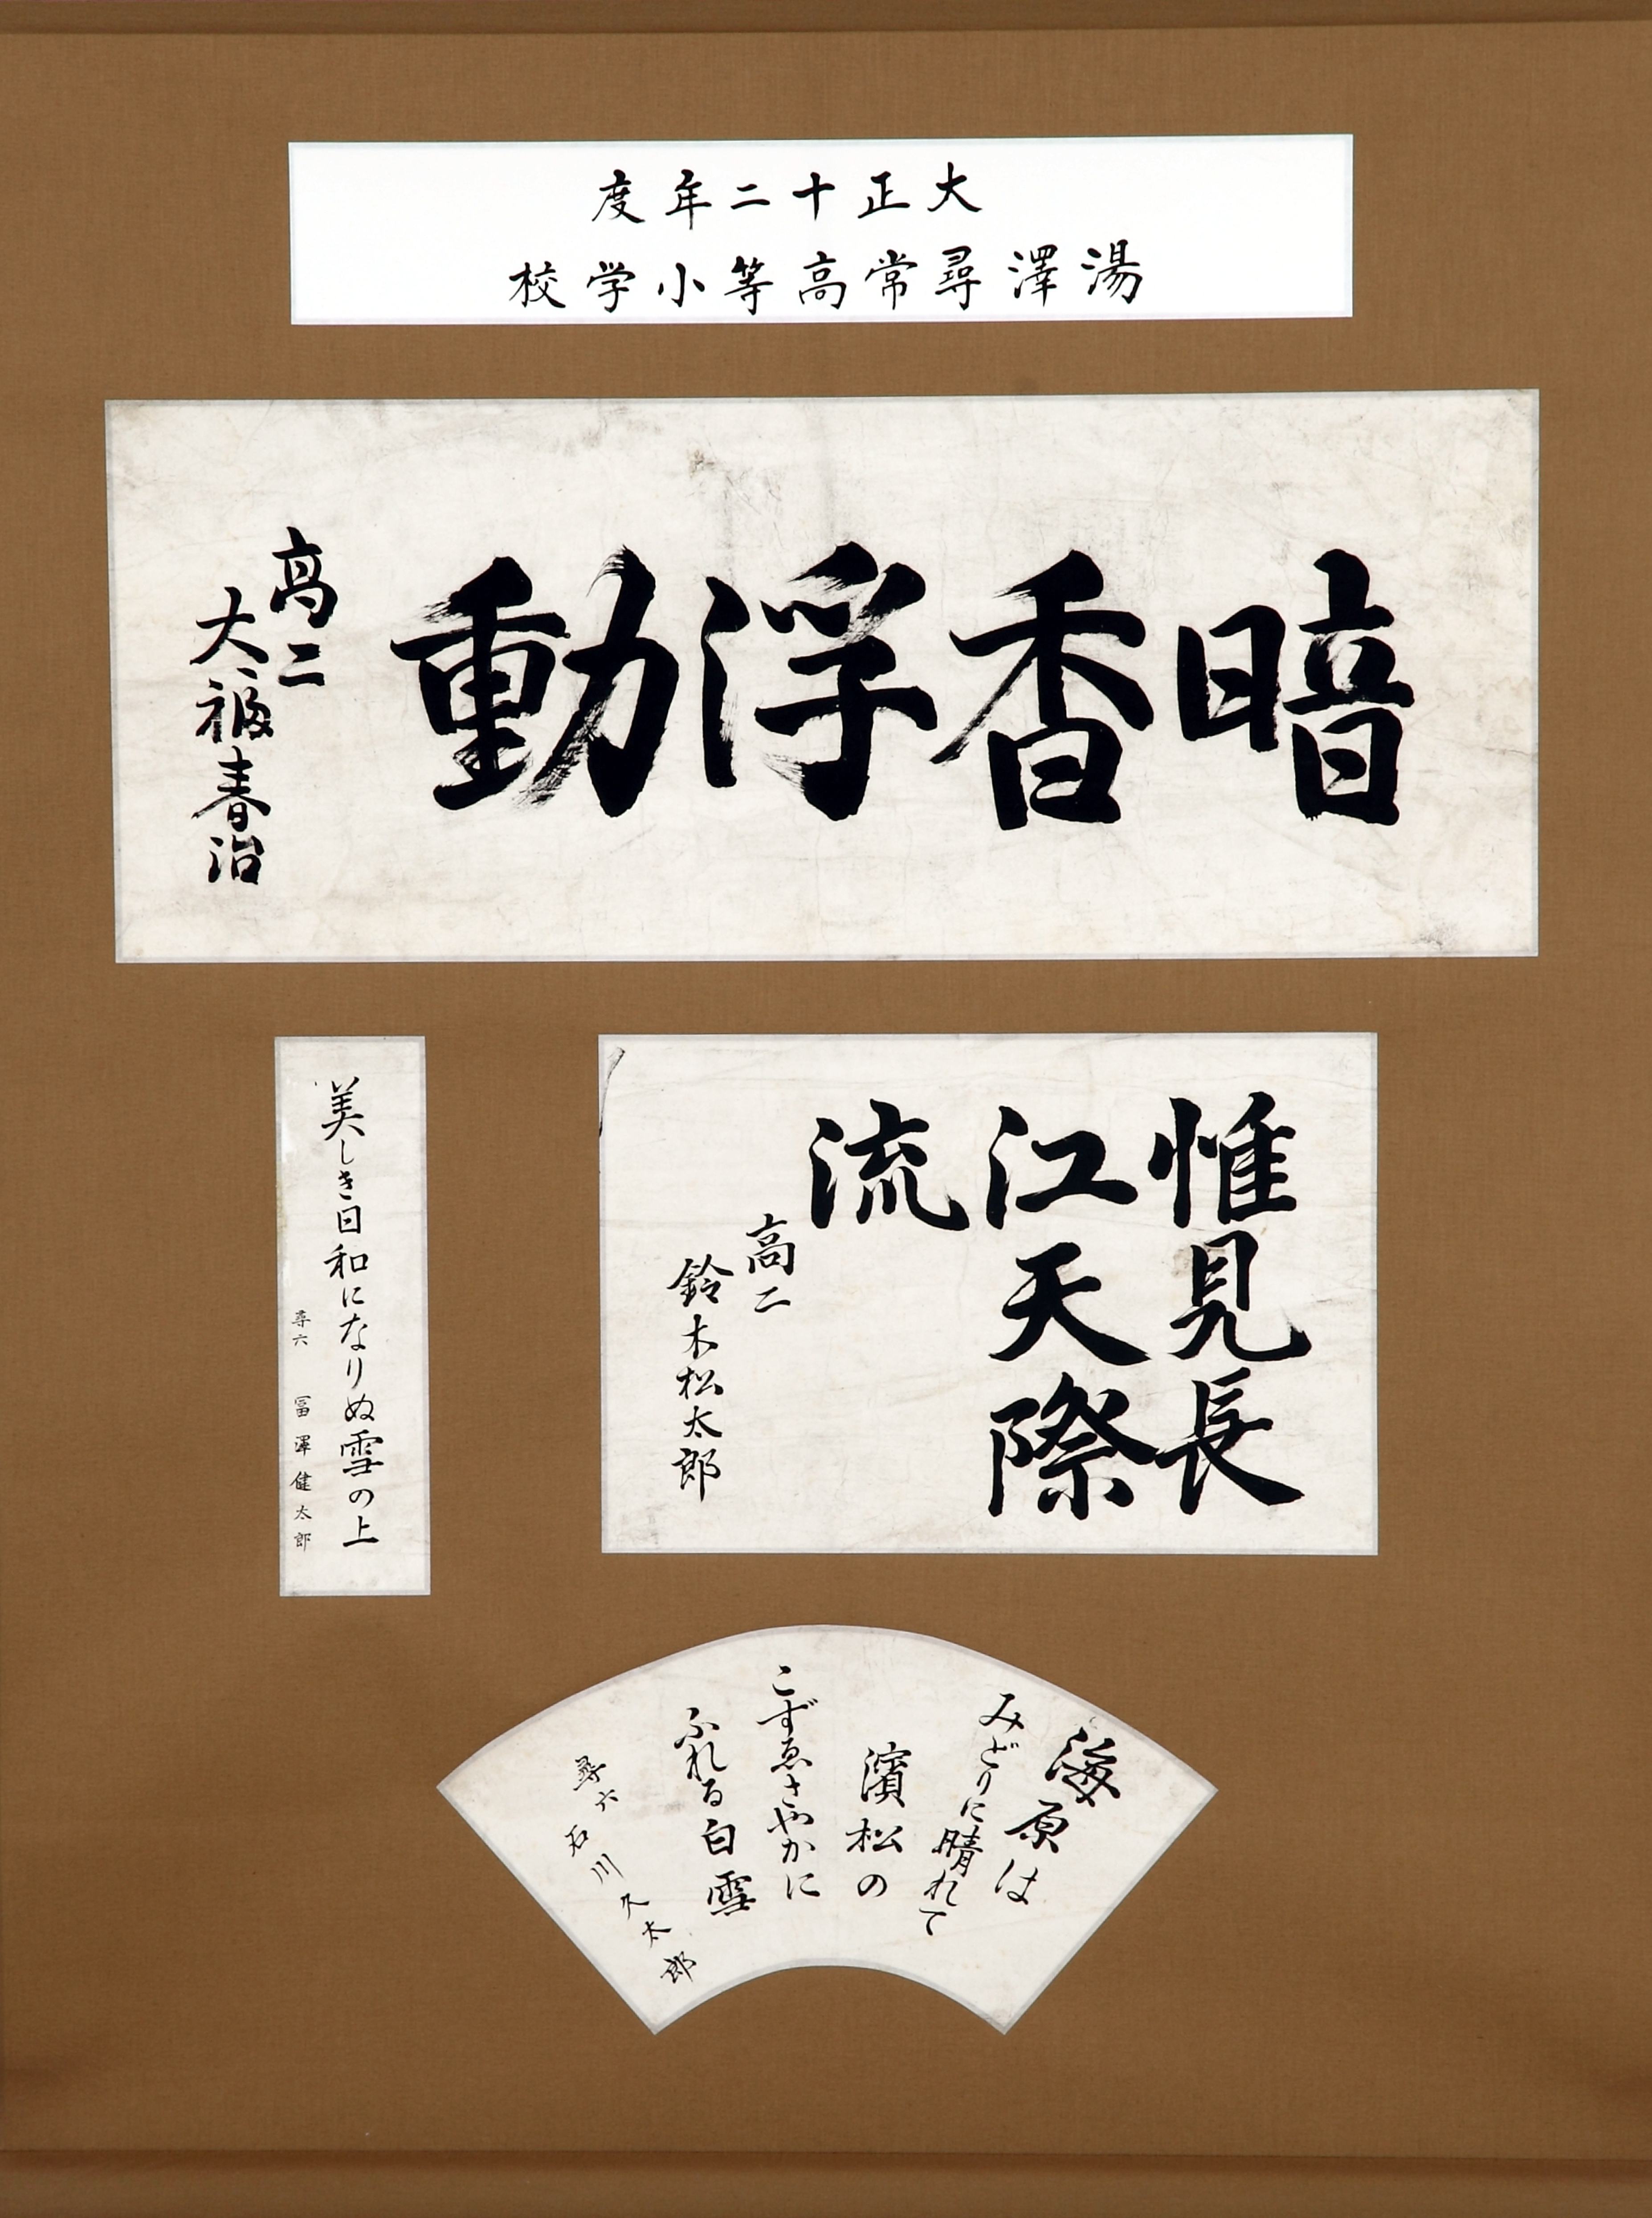 大正十二年度
湯澤尋常高等小学校
暗香浮動
高二
大福春治
惟見長
江天際
流
高二
鈴木松太郎
美しき日和になりぬ雪の上
尋六 冨澤健太郎
海原は
みどりに晴れて
濱松の
こずゑさやかに
ふれる白雪
尋六 石川久太郎